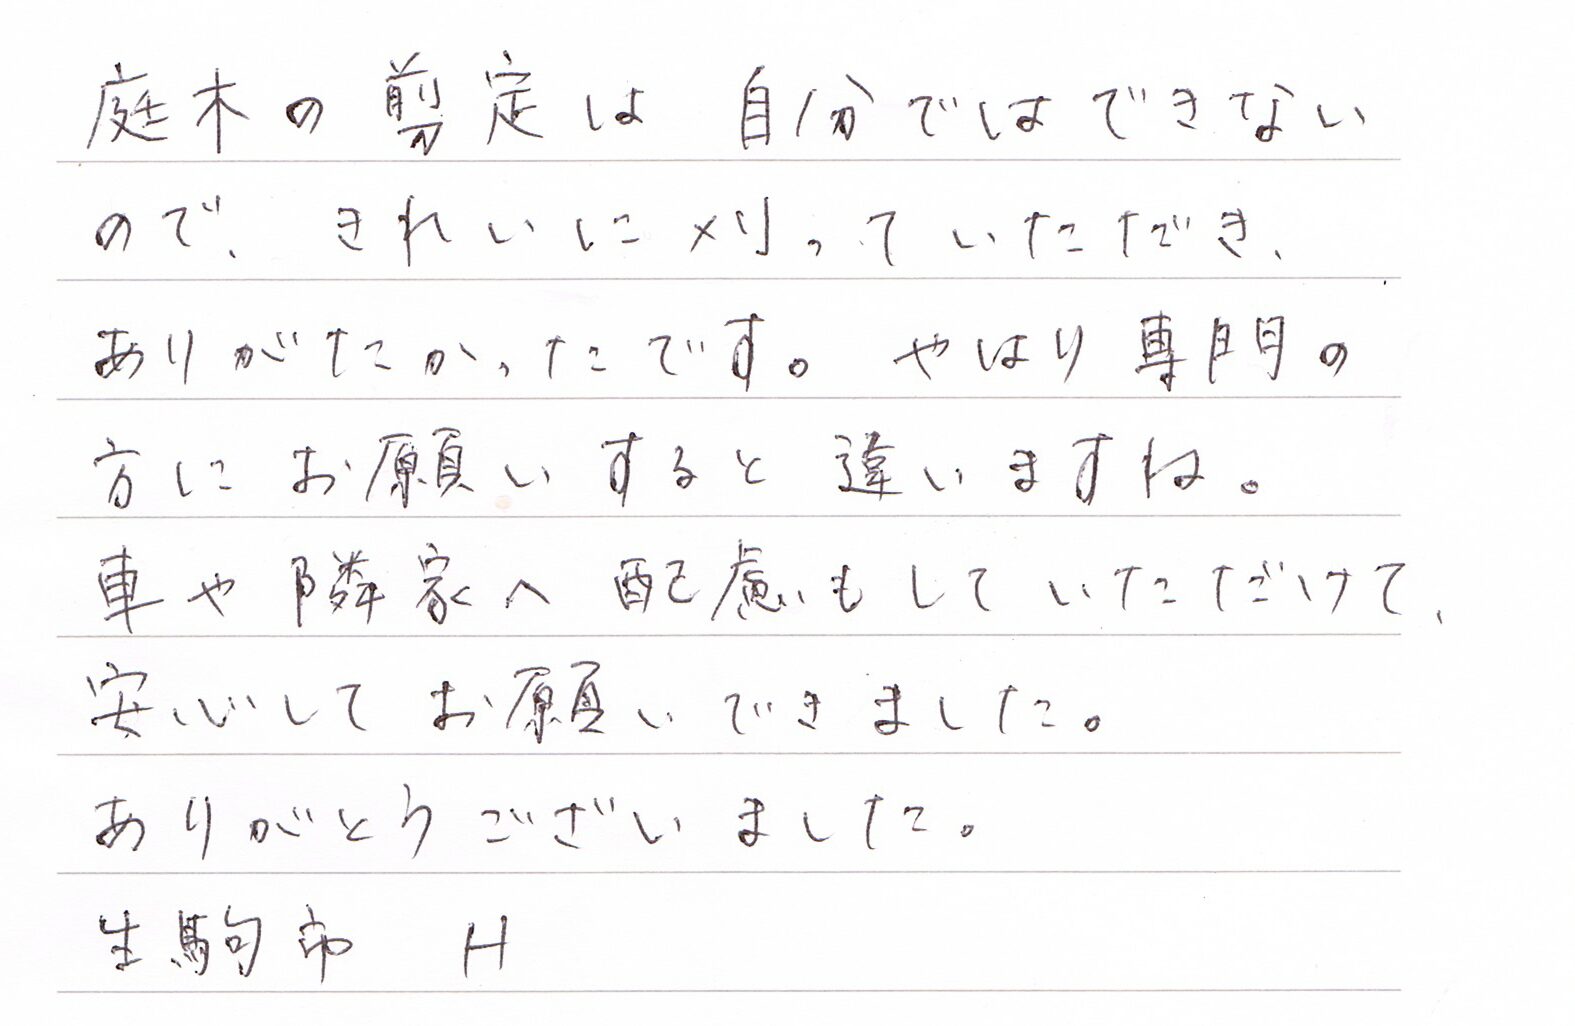 庭木の剪定は 自分ではできない
ので、きれいに刈っていただき、
ありがたかったです。やはり専門の
方にお願いすると違いますね。
車や隣家へ配慮もしていただけて、
安心してお願いできました。
ありがとうございました。
生駒市 H